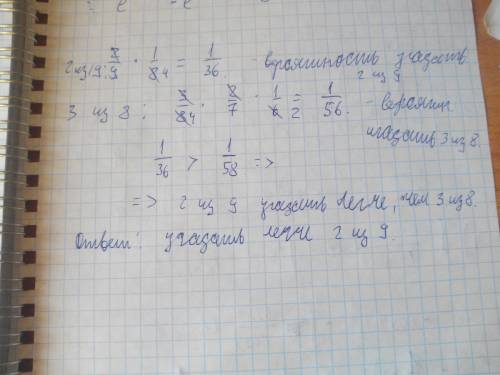 2 из 9: 2/9 · 1/8 4 = 1/36 - вероятность угадать 2 из 9
3 из 8: 3/8 4 · 2/7 · 1/6 2 = 1/56. - вероятн угадать 3 из 8.
1/36 > 1/58 =>
=> 2 из 9 угадать легче, чем 3 из 8.
Ответ: угадать легче 2 из 9.